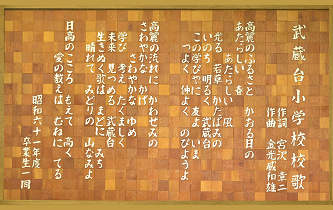 武蔵台小学校校歌
作詞 宮沢章二
作曲 金光威和雄
高麗のふるさと かおる日の
あたらしい 春
あたらしい 風
光る 若草 かたばみの
いのち 明るく 武蔵台
この学びや 友よ いま
つよく 仲よく のびようよ
高麗の流れに かわせみの
さわやかな かげ
さわやかな ゆめ
学び 考え たくましく
未来 見つめる 武蔵台
生きぬく歌は まどに みち
晴れて みどりの 山なみよ
日高のこころ もえて 高く
愛の教えは むねに てる
昭和六十一年度
卒業生一同